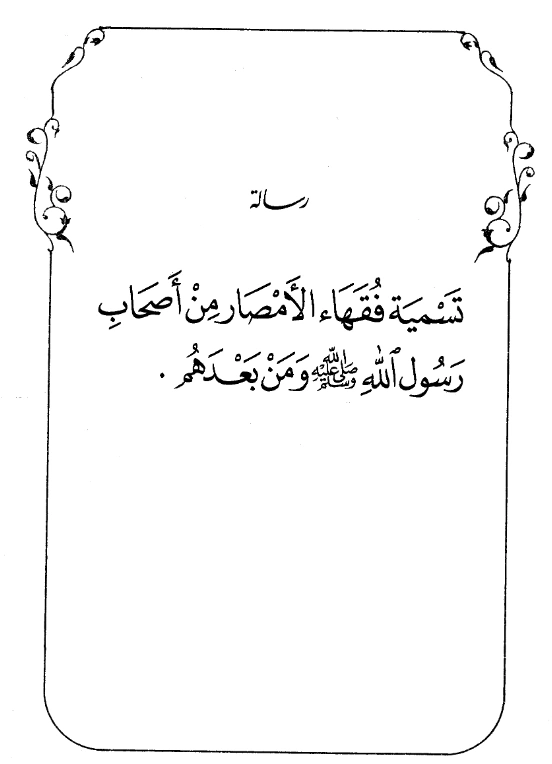 رسالة
تَسْمِيَة فُقَهَاء الأَمْصَار مِنْ أَصْحَابِ
رَسُول ٱللّٰهِ ﷺ وَمَنْ بَعْدَهُم .